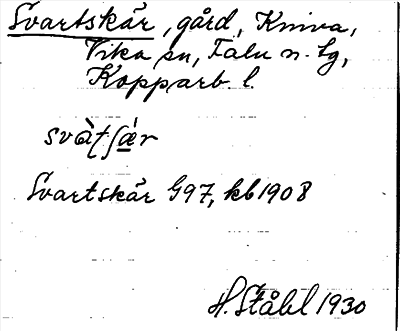 Svartskär, gård, Kniva,
Vika sn, Falu n. tg,
Kopparb. l.
svàtʃǽr
Svartskär G97, kb 1908
H. Ståhl 1930